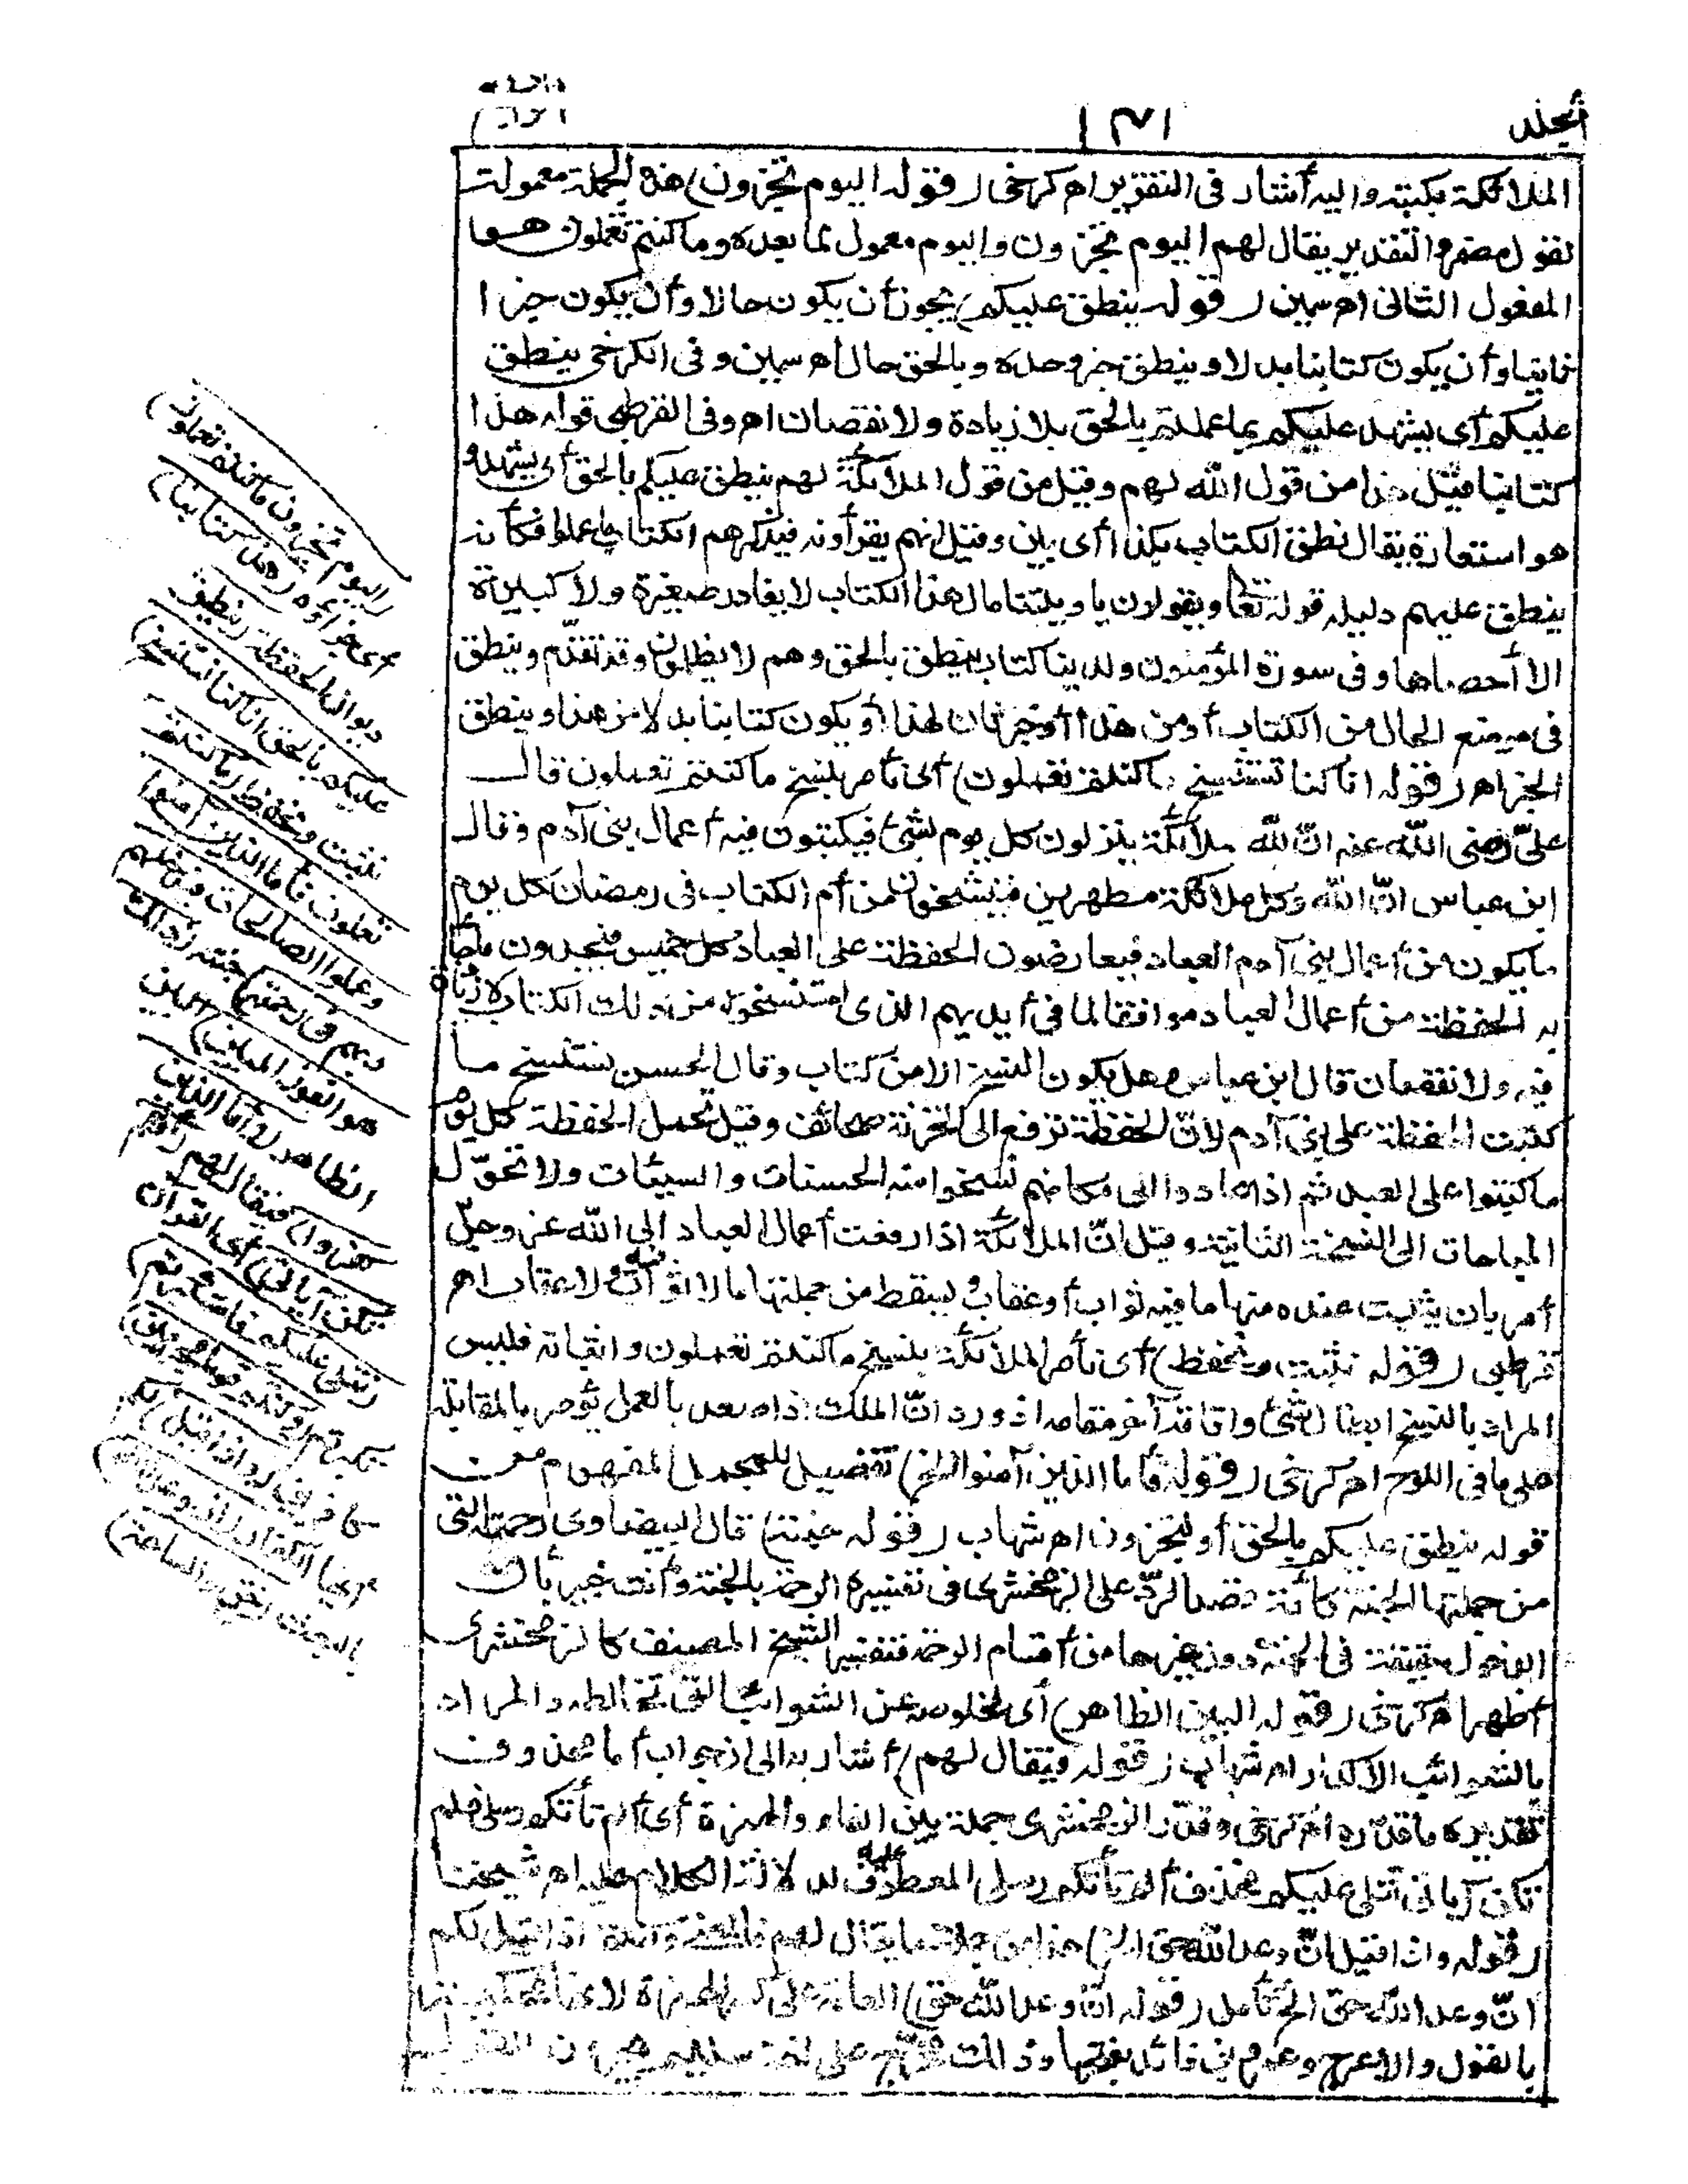 المجلد
١٣١
الملائكة بكتبته واليه أشار في التقرير اه كرخى (قوله اليوم تجزون) هذه الجملة معمولة
لقول مضمر والتقدير يقال لهم اليوم تجزون واليوم معمول لما بعده وما كنتم تعملون هو
المفعول الثانى اه سمين (قوله ينطق عليكم) يجوز أن يكون حالا وأن يكون خبرا
ثانيا وأن يكون كتابنا بدلا وينطق خبر وحده وبالحق حال اه سمين وفى الكرخى ينطق
عليكم أى يشهد عليكم بما عملتم بالحق بلا زيادة ولا نقصان اه وفى القرطبى قوله هذا
كتابنا قيل هذا من قول الله لهم وقيل من قول الملائكة لهم ينطق عليكم بالحق أى يشهد و
هو استعارة يقال نطق الكتاب بكذا أى بان وقيل انهم يقرأونه فيذكرهم الكتاب ما عملوا فكأنه
ينطق عليهم دليله قوله تعالى ويقولون ياويلتنا مال هذا الكتاب لا يغادر صغيرة ولا كبيرة
الا أحصاها وفى سورة المؤمنون ولدينا كتاب ينطق بالحق وهم لا يظلمون وقد تقدم وينطق
فى موضع الحال من الكتاب أو من هذا أو خبر ثان لهذا أو يكون كتابنا بدلا من هذا وينطق
الخبر اه (قوله انا كنا نستنسخ ما كنتم تعملون) أى نأمر بنسخ ما كنتم تعملون قال
علىّ رضى الله عنه انّ لله ملائكة ينزلون كل يوم بشئ فيكتبون فيه أعمال بنى آدم وقال
ابن عباس انّ الله وكل ملائكة مطهرين فينسخون من أم الكتاب فى رمضان كل يوم
ما يكون من أعمال بنى آدم العباد فيعارضون الحفظة على العباد كل خميس فيجدون ما جاء
به الحفظة من أعمال العباد موافقا لما فى أيديهم الذى استنسخوه من ذلك الكتاب لا زيادة
فيه ولا نقصان قال ابن عباس وهل يكون النسخ الا من كتاب وقال الحسن نستنسخ ما
كتبت الحفظة على بنى آدم لانّ الحفظة ترفع الى الخزنة صحائف وقيل تحمل الحفظة كل يوم
ما كتبوا على العبد ثم اذا عادوا الى مكانهم نسخوا منه الحسنات والسيئات ولا تحوّل
المباحات الى النسخة الثانية وقيل انّ الملائكة اذا رفعت أعمال العباد الى الله عز وجلّ
أمر بان يثبت عنده منها ما فيه ثواب أو عقاب ويسقط من جملتها ما لا ثواب فيه ولا عقاب اه
قرطبى (قوله نثبت ونحفظ) أى نأمر الملائكة بنسخ ما كنتم تعملون واثباته فليس
المراد بالنسخ ابطال الشئ واقامة آخر مقامه اذ ورد انّ الملك اذا صعد بالعمل يؤمر بالمقابلة
على ما فى اللوح اه كرخى (قوله فأما الذين آمنوا الخ) تفصيل للمجمل المفهوم من
قوله ينطق عليكم بالحق أو تجزون اه شهاب (قوله جنته) قال البيضاوى رحمته التى
من جملتها الجنة كأنه قصد الردّ على الزمخشرى فى تفسيره الرحمة بالجنة وأنت خبير بأن
الدخول حقيقة فى الجنة دون غيرها من أقسام الرحمة فتفسير الشيخ المصنف كالزمخشرى
أظهر اه كرخى (قوله البين الظاهر) أى لخلوصه عن الشوائب التى تخالطه والمراد
بالشوائب الاكدار اه شهاب (قوله فيقال لهم) أشار به الى انّ جواب أما محذوف
تقديره ما قدّره اه كرخى وقدّر الزمخشرى جملة بين الفاء والهمزة أى ألم تأتكم رسلى فلم
تكن آياتى تتلى عليكم فحذف ألم تأتكم رسلى المعطوف عليه لدلالة الكلام عليه اه شيخنا
(قوله واذا قيل انّ وعد الله حق الخ) هذا من جملة ما يقال لهم اذا قيل لكم
انّ وعد الله حق الخ تأمل (قوله انّ وعد الله حق) العامة على كسر الهمزة لانها محكية
بالقول والاعرج وعمرو بن فائد بفتحها وذلك على لغة سليم القول
(اليوم تجزون ما كنتم تعملون)
أى جزاءه (هذا كتابنا)
ديوان الحفظة (ينطق
عليكم بالحق انا كنا نستنسخ)
نثبت ونحفظ (ما كنتم
تعملون فأما الذين آمنوا
وعملوا الصالحات فيدخلهم
ربهم فى رحمته) جنته (ذلك
هو الفوز المبين) البين
الظاهر (وأما الذين
كفروا) فيقال لهم (أفلم
تكن آياتى) أى القرآن
(تتلى عليكم فاستكبرتم)
تكبرتم (وكنتم قوما مجرمين)
كافرين (واذا قيل) لكم
أيها الكفار (ان وعد الله)
بالبعث (حق والساعة)